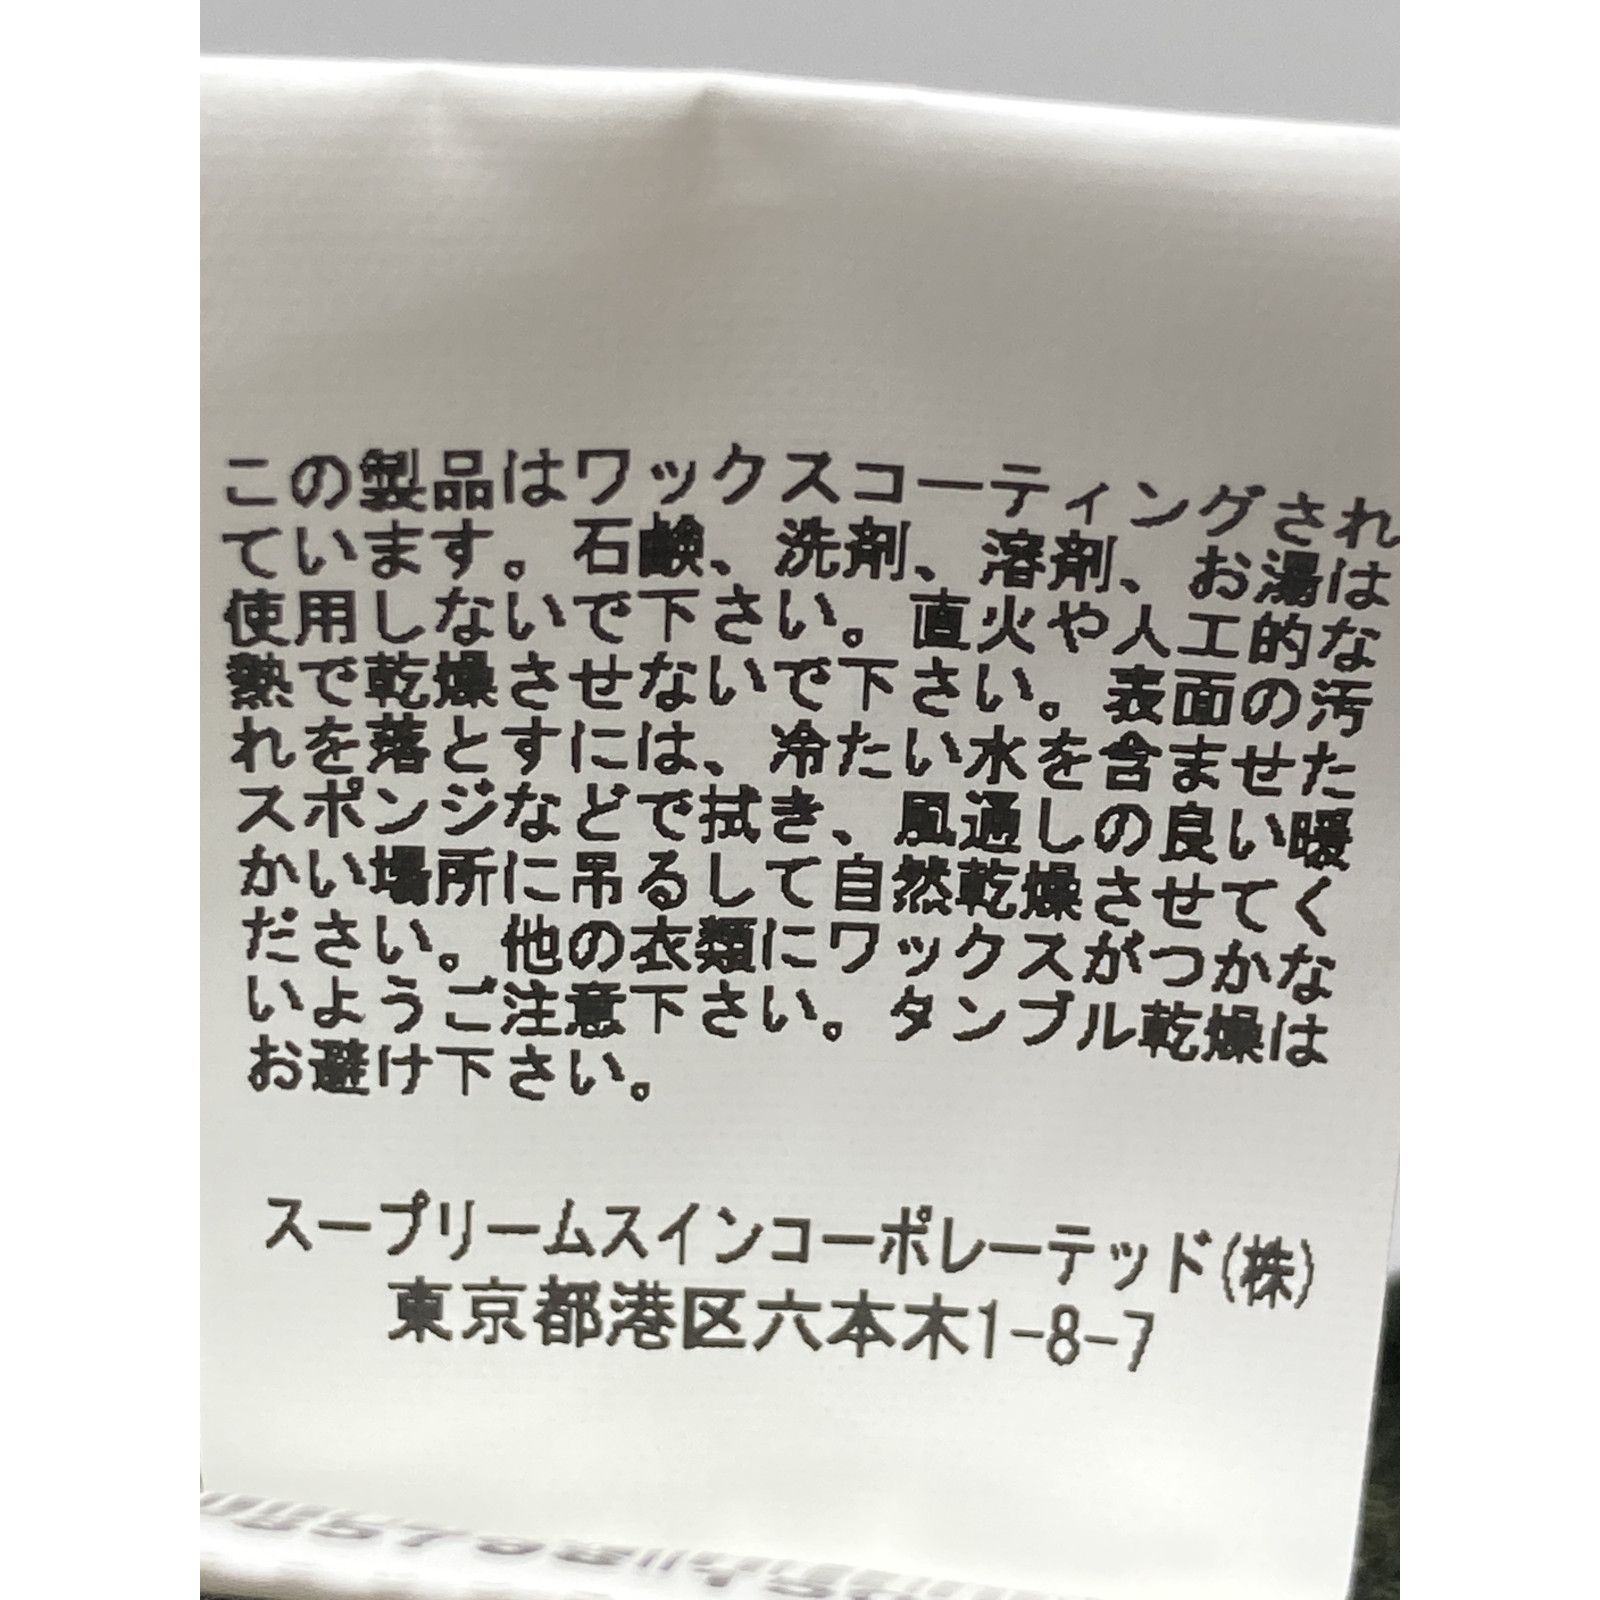 この製品はワックスコーティングされ
ています。石鹸、洗剤、溶剤、お湯は
使用しないで下さい。直火や人工的な
熱で乾燥させないで下さい。表面の汚
れを落とすには、冷たい水を含ませた
スポンジなどで拭き、風通しの良い暖
かい場所に吊るして自然乾燥させてく
ださい。他の衣類にワックスがつかな
いようご注意下さい。タンブル乾燥は
お避け下さい。
スープリームスインコーポレーテッド(株)
東京都港区六本木1-8-7